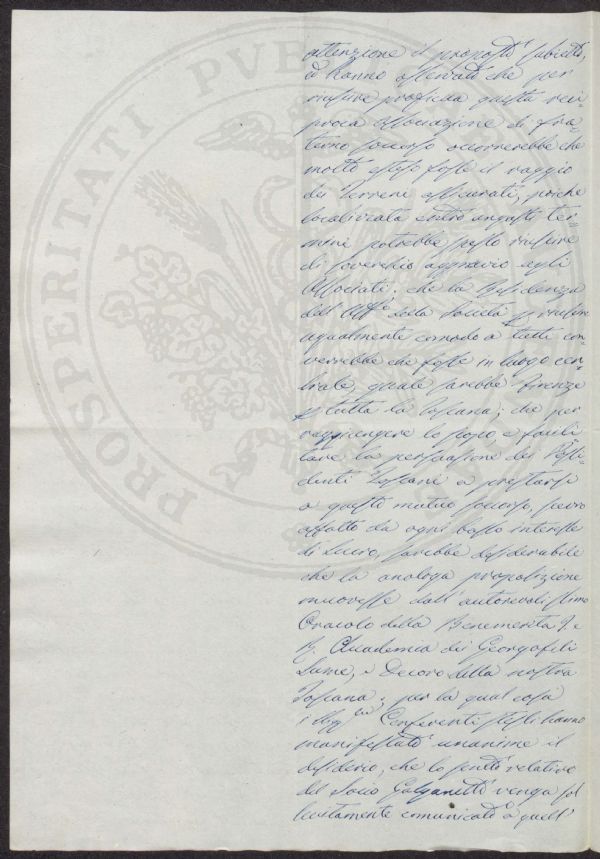 attenzione il proposto subietto,
ed hanno osservato che per
riuscire proficua questa reci
proca associazione di fra=
terno soccorso occorrerebbe che
molto esteso fosse il raggio
dei Terreni assicurati, poiche
localizzata entro angusti ter=
mini potrebbe presto riuscire
di soverchio aggravio agli
Associati; che la Residenza
dell'Uff.o della Società p riuscire
egualmente comoda a tutti con=
verrebbe che fosse in luogo cen=
trale, quale sarebbe Firenze
p tutta la Toscana; che per
raggiungere lo scopo e facili
tare la persuasione dei Possi=
denti Toscani a prestarsi
a questo mutuo soccorso, scevro
affatto da ogni basso interesse
di Lucro, sarebbe desiderabile
che la analoga proposizione
muovesse dall'autorevolissimo
Oracolo della Benemerita I. e
R. Accademia dei Georgofili
Lume, e Decoro della nostra
Toscana; per la qual cosa
i Conferenti stessi hanno
manifestato unanime il
desiderio, che lo scritto relativo
del Socio Galganetti venga sol
lecitamente comunicato a quell'
PROSPERITATI PUB